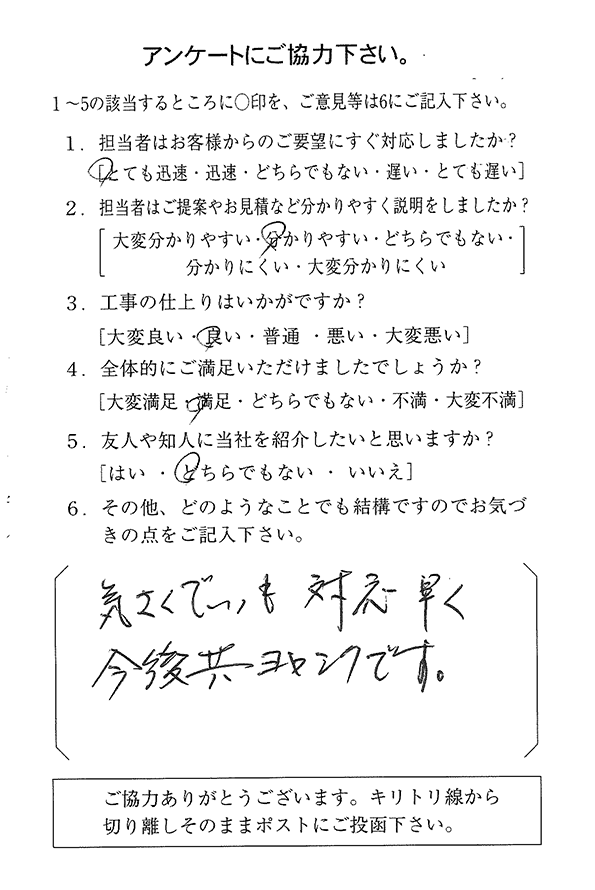 アンケートにご協力下さい。
1～5の該当するところに○印を、ご意見等は6にご記入下さい。
1．担当者はお客様からのご要望にすぐ対応しましたか？
［とても迅速・迅速・どちらでもない・遅い・とても遅い］
2．担当者はご提案やお見積など分かりやすく説明をしましたか？
［大変分かりやすい・分かりやすい・どちらでもない・
分かりにくい・大変分かりにくい］
3．工事の仕上りはいかがですか？
［大変良い・良い・普通・悪い・大変悪い］
4．全体的にご満足いただけましたでしょうか？
［大変満足・満足・どちらでもない・不満・大変不満］
5．友人や知人に当社を紹介したいと思いますか？
［はい・どちらでもない・いいえ］
6．その他、どのようなことでも結構ですのでお気づ
きの点をご記入下さい。
気さくでいつも 対応 早く
今後共ヨロシクです。
ご協力ありがとうございます。キリトリ線から
切り離しそのままポストにご投函下さい。